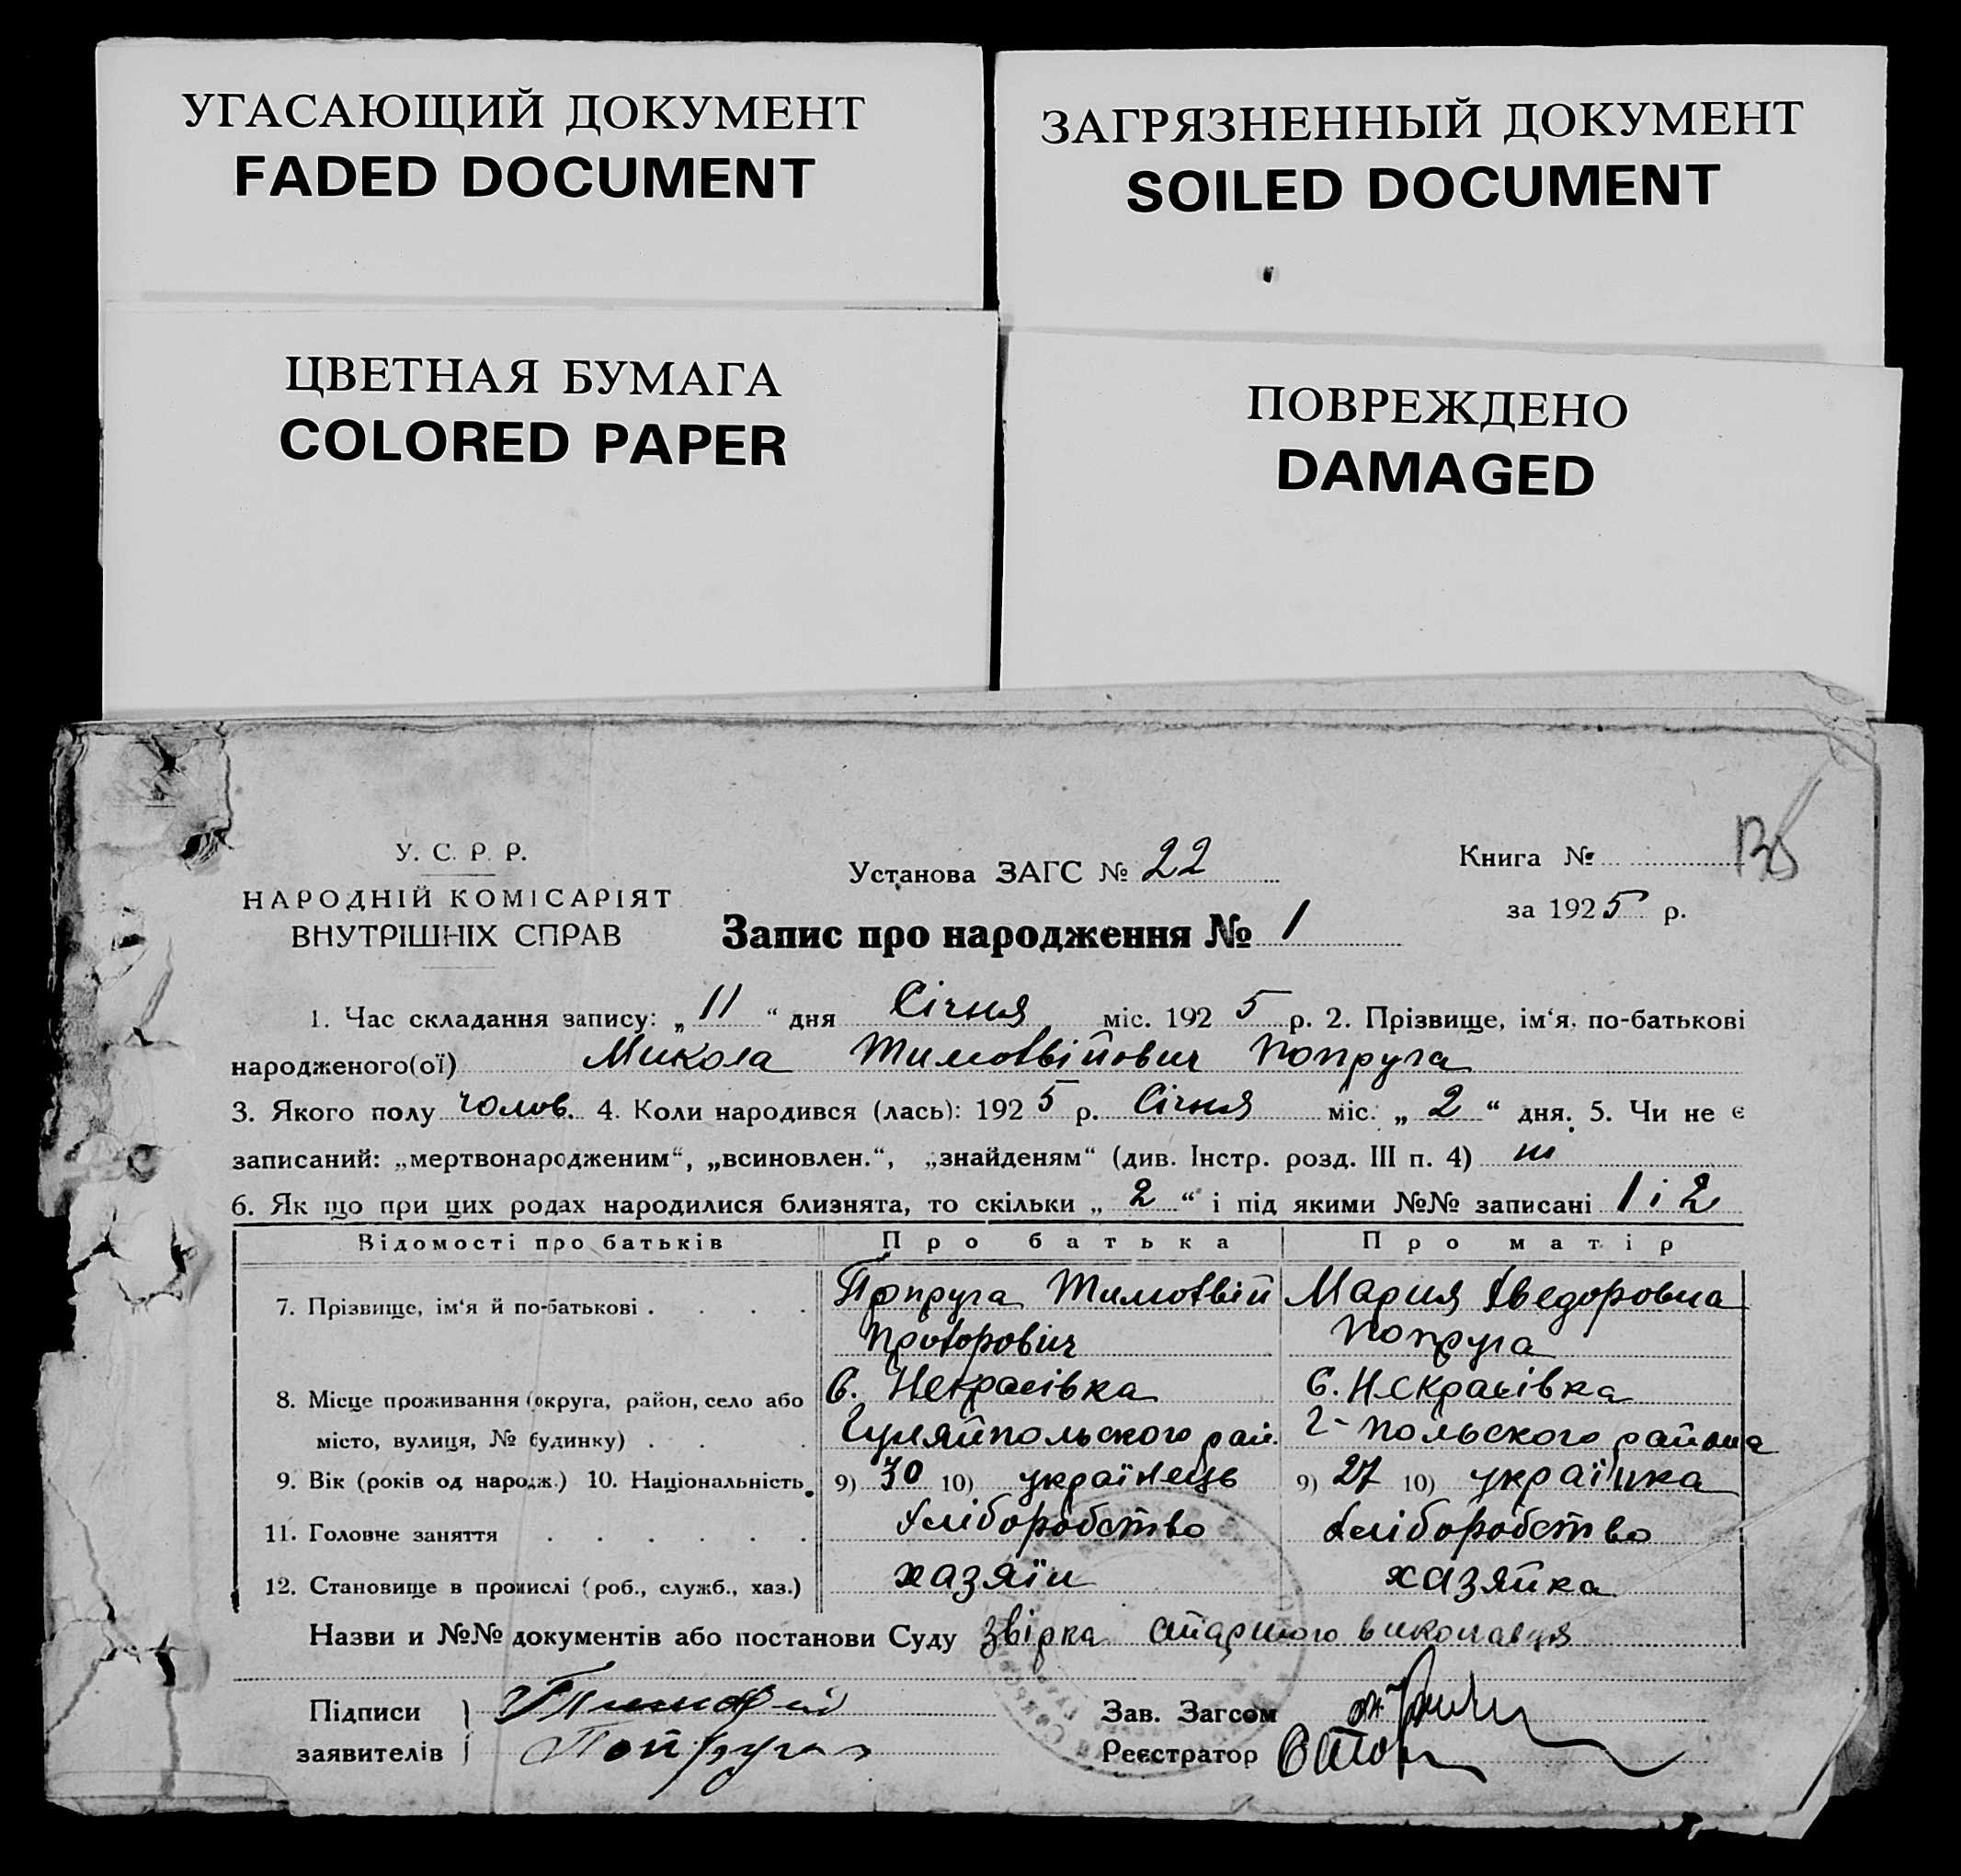 УГАСАЮЩИЙ ДОКУМЕНТ
FADED DOCUMENT
ЗАГРЯЗНЕННЫЙ ДОКУМЕНТ
SOILED DOCUMENT
ЦВЕТНАЯ БУМАГА
COLORED PAPER
ПОВРЕЖДЕНО
DAMAGED
У. С. Р. Р.
НАРОДНІЙ КОМІСАРІЯТ
ВНУТРІШНІХ СПРАВ
Установа ЗАГС № 22
Запис про народження № 1
Книга №
за 1925 р.
1. Час складання запису: „11“ дня Січня міс. 1925 р. 2. Прізвище, ім‘я, по-батькові
народженого(ої) Микола Тимотвійович Попруга
3. Якого полу чолов. 4. Коли народився (лась): 1925 р. Січня міс. „2“ дня. 5. Чи не є
записаний: „мертвонародженим“, „всиновлен.“, „знайденям“ (див. Інстр. розд. III п. 4)
6. Як що при цих родах народилися близнята, то скільки „2“ і під якими №№ записані 1 і 2
Відомості про батьків Про батька Про матір
7. Прізвище, ім‘я й по-батькові . . . . Попруга Тимотвій Мария Хведоровна
Попруга
8. Місце проживання (округа, район, село або С. Некрасівка С. Некрасівка
місто, вулиця, № будинку) . . . Гуляйпольского рай. Г-польского района
9. Вік (років од народж.) 10. Національність 9) 30 10) українець 9) 27 10) українка
11. Головне заняття . . . . . . Хліборобство Хліборобство
12. Становище в промислі (роб., служб., хаз.) хазяїн хазяйка
Назви и №№ документів або постанови Суду звірка старшого виконавця
Підписи Зав. Загсом
заявителів Попруга Реєстратор